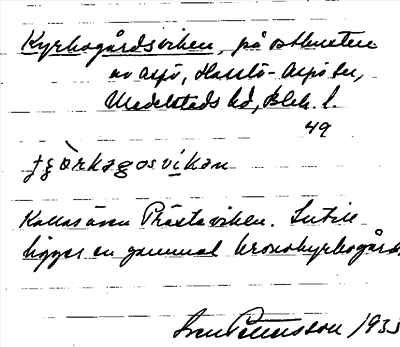 Kyrkogårdsviken, på ostkusten
av Aspö, Hasslö-Aspö sn,
Medelstads hd, Blek. l.
49
Kallas även Prästaviken. Intill
ligger en gammal kronokyrkogård.
Sven Petersson 1935